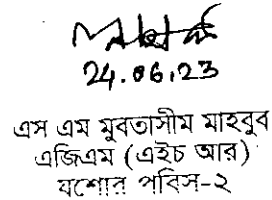 24.06.23
এস এম মুবতাসীম মাহবুব
এজিএম (এইচ আর)
যশোর পবিস-২